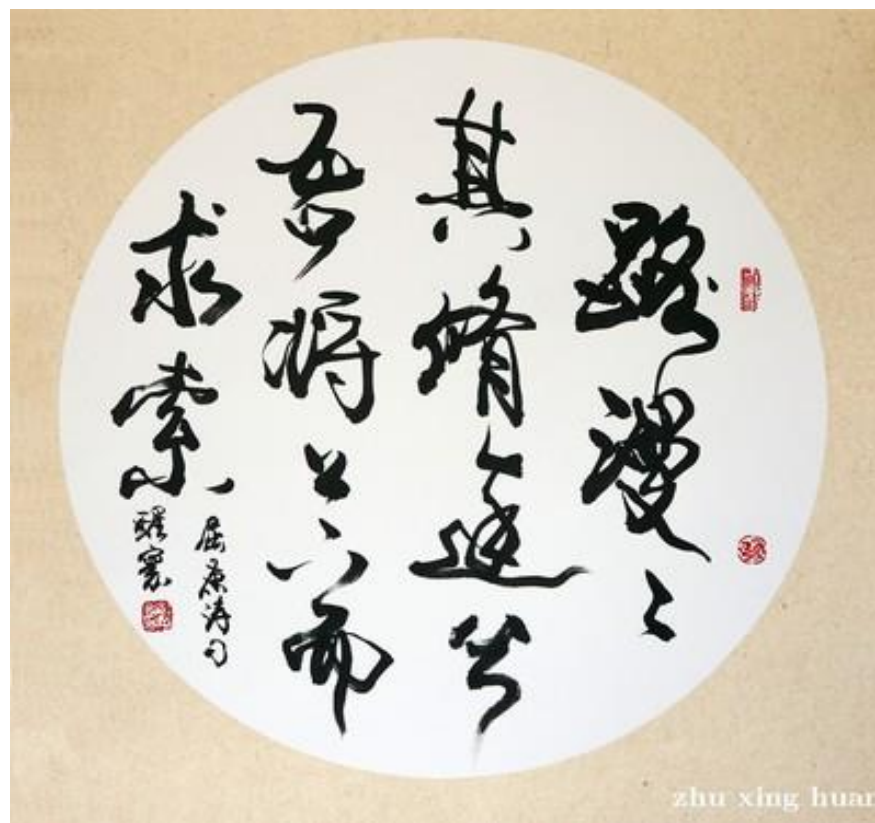 路漫々
其脩遠兮
吾將上下而
求索
屈原詩句
醒寰
zhu xing huan